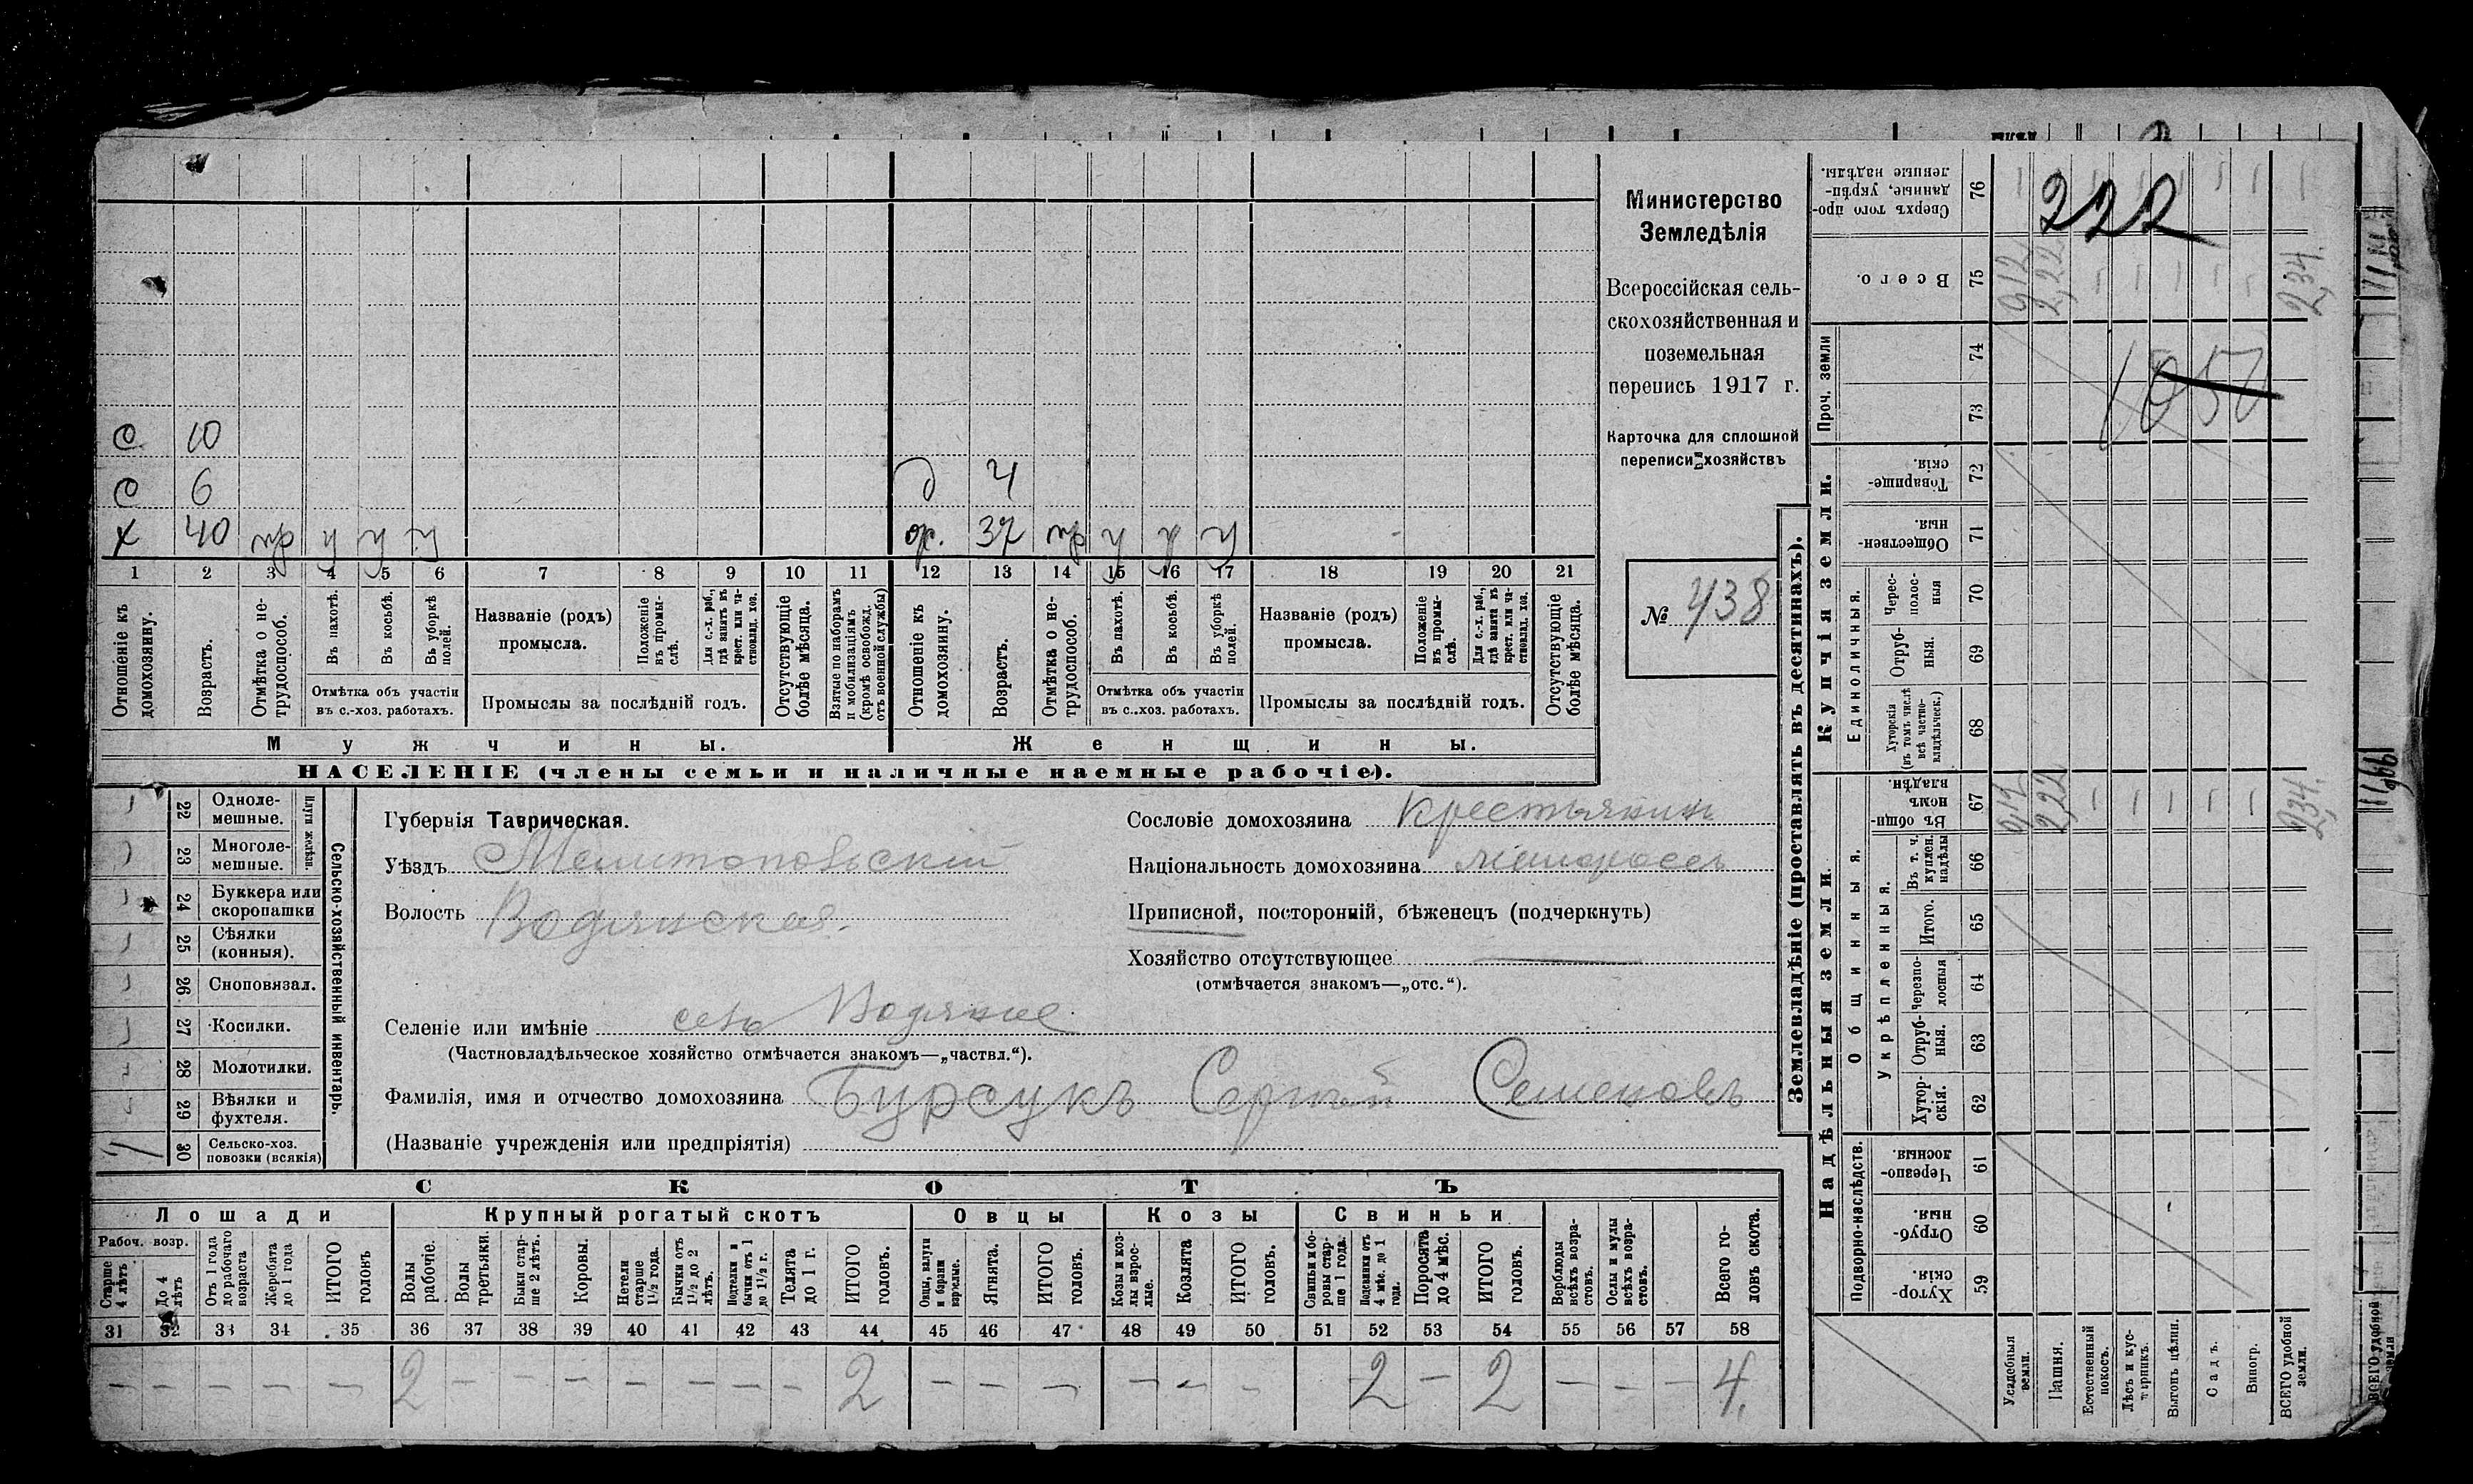 С 10
С 6 д 4
Х 40 тр ч ч ч ор. 37 тр ч ч ч
1 2 3 4 5 6 7 8 9 10 11 12 13 14 15 16 17 18 19 20 21
Отношеніе къ домохозяину.
Возрастъ.
Отмѣтка о не-трудоспособ.
Въ пахотѣ.
Въ косьбѣ.
Въ уборкѣ полей.
Отмѣтка объ участіи
въ с.-хоз. работахъ.
Названіе (родъ)
промысла.
Положеніе въ промы-слѣ.
Для с.-х. раб., гдѣ занятъ въ крест. или ча-стновлад. хоз.
Промыслы за послѣдній годъ.
Отсутствующіе болѣе мѣсяца.
Взятые по наборамъ и мобилизаціямъ (кромѣ освобожд. отъ военной службы)
Отношеніе къ домохозяину.
Возрастъ.
Отмѣтка о не-трудоспособ.
Въ пахотѣ.
Въ косьбѣ.
Въ уборкѣ полей.
Отмѣтка объ участіи
въ с.-хоз. работахъ.
Названіе (родъ)
промысла.
Положеніе въ промы-слѣ.
Для с.-х. раб., гдѣ занята въ крест. или ча-стновлад. хоз.
Промыслы за послѣдній годъ.
Отсутствующіе болѣе мѣсяца.
Мужчины. Женщины.
НАСЕЛЕНІЕ (члены семьи и наличные наемные рабочіе).
Министерство
Земледѣлія
Всероссійская сель-
скохозяйственная и
поземельная
перепись 1917 г.
Карточка для сплошной
переписи хозяйствъ
№ 438
Сельско-хозяйственный инвентарь.
Плуги желѣзн.
22 Одноле-мешные.
23 Многоле-мешные.
24 Буккера или скоропашки
25 Сѣялки (конныя).
26 Сноповязал.
27 Косилки.
28 Молотилки.
29 Вѣялки и фухтеля.
1 30 Сельско-хоз. повозки (всякія)
Губернія Таврическая.
Уѣздъ Мелитопольскій
Волость Водянская.
Сословіе домохозяина Крестьянинъ
Національность домохозяина малороссъ
Приписной, посторонній, бѣженецъ (подчеркнуть)
Хозяйство отсутствующее
(отмѣчается знакомъ—„отс.“).
Селеніе или имѣніе село Водяное
(Частновладѣльческое хозяйство отмѣчается знакомъ—„частвл.“).
Фамилія, имя и отчество домохозяина Бурсукъ Сергѣй Семеновъ
(Названіе учрежденія или предпріятія)
СКОТЪ
Лошади Крупный рогатый скотъ Овцы Козы Свиньи
Рабоч. возр.
Старше 4 лѣтъ
До 4 лѣтъ
Отъ 1 года до рабочаго возраста
Жеребята до 1 года
ИТОГО головъ
Волы рабочіе.
Волы третьяки.
Быки стар-ше 2 лѣтъ.
Коровы.
Нетели старше 1½ года.
Бычки отъ 1½ до 2 лѣтъ.
Подтелки и бычки отъ 1 до 1½ г.
Телята до 1 г.
ИТОГО головъ.
Овцы, валухи и бараны взрослые.
Ягнята.
ИТОГО головъ.
Козы и коз-лы взрос-лые.
Козлята
ИТОГО головъ.
Свиньи и бо-ровы стар-ше 1 года.
Подсвинки отъ 4 мѣс. до 1 года.
Поросята до 4 мѣс.
ИТОГО головъ.
Верблюды всѣхъ возра-стовъ.
Ослы и мулы всѣхъ возра-стовъ.
Всего го-ловъ скота.
31 32 33 34 35 36 37 38 39 40 41 42 43 44 45 46 47 48 49 50 51 52 53 54 55 56 57 58
– – – – – 2 – – – – – – – 2 – – – – – – – 2 – 2 – – – 4.
Землевладѣніе (проставлять въ десятинахъ).
Надѣльныя земли.
Купчія земли.
Проч. земли
Подворно-наслѣдств.
Общинныя.
Укрѣпленныя.
Единоличныя.
59 Хутор-скія.
60 Отруб-ныя.
61 Черезпо-лосныя.
62 Хутор-скія.
63 Отруб-ныя.
64 Черезпо-лосныя
65 Итого.
66 Въ т. ч. куплен. надѣлы
67 Въ общи-номъ владѣн.
68 Хуторскія (въ томъ числѣ всѣ частно-владѣльческ.)
69 Отруб-ныя.
70 Черес-полос-ныя
71 Обществен-ныя.
72 Товарище-скія.
73
74
75 Всего.
76 Сверхъ того про-данные, укрѣп-ленные надѣлы.
Усадебныя земли. 0,12 0,12
Пашня. 2,22 2,22
Естественный покосъ.
Лѣсъ и кус-тарникъ.
Выгонъ цѣлин.
Садъ.
Виногр.
ВСЕГО удобной земли. 2,34. 2,34.
222
1050
ВСЕГО удобной земли